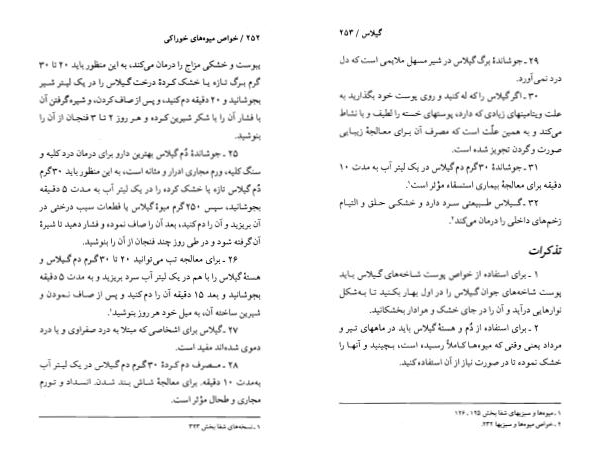 ۲۵۲ / خواص میوه‌های خوراکی
یبوست و خشکی مزاج را درمان می‌کند، به این منظور باید ۲۰ تا ۳۰
گرم برگ تازه یا خشک کردهٔ درخت گیلاس را در یک لیتر شیر
بجوشانید و ۲۰ دقیقه دم کنید، و پس از صاف کردن، و شیره‌گرفتن آن
با فشار آن را با شکر شیرین کرده و هر روز ۲ تا ۳ فنجان از آن را
بنوشید.
۲۵ ـ جوشاندهٔ دُم گیلاس بهترین دارو برای درمان درد کلیه و
سنگ کلیه، ورم مجاری ادرار و مثانه است، به این منظور باید ۳۰گرم
دُم گیلاس تازه یا خشک کرده را در یک لیتر آب به مدت ۵ دقیقه
بجوشانید، سپس ۲۵۰ گرم میوهٔ گیلاس یا قطعات سیب درختی در
آن بریزید و آن را دم کنید، بعد آن را صاف نموده و فشار دهید تا شیرهٔ
آن گرفته شود و در طی روز چند فنجان از آن را بنوشید.
۲۶ ـ برای معالجه تب می‌توانید ۲۰ تا ۳۰گرم دم گیلاس و
هستهٔ گیلاس را با هم در یک لیتر آب سرد بریزید و به مدت ۵ دقیقه
بجوشانید و بعد ۱۵ دقیقه آن را دم کنید و پس از صاف نمودن و
شیرین ساخته آن، به میل خود هر روز بنوشید۱.
۲۷ ـ گیلاس برای اشخاصی که مبتلا به درد صفراوی و یا درد
دموی شده‌اند مفید است.
۲۸ ـ مصرف دم کردهٔ ۳۰گرم دم گیلاس در یک لیتر آب
به‌مدت ۱۰ دقیقه. برای معالجهٔ شاش بند شدن. انسداد و تورم
مجاری و طحال مؤثر است.
۱ ـ نسخه‌های شفا بخش ۳۲۳
گیلاس / ۲۵۳
۲۹ ـ جوشاندهٔ برگ گیلاس در شیر مسهل ملایمی است که دل
درد نمی‌آورد.
۳۰ ـ اگر گیلاس را که له کنید و روی پوست خود بگذارید به
علت ویتامینهای زیادی که دارد، پوستهای خسته را لطیف و با نشاط
می‌کند و به همین علّت است که مصرف آن برای معالجهٔ زیبایی
صورت و گردن تجویز شده است.
۳۱ ـ جوشاندهٔ ۳۰گرم دم گیلاس در یک لیتر آب به مدت ۱۰
دقیقه برای معالجهٔ بیماری استسقاء مؤثر است۱.
۳۲ ـ گیلاس طبیعتی سرد دارد و خشکی حلق و التیام
زخم‌های داخلی را درمان می‌کند۲.
تذکرات
۱ ـ برای استفاده از خواص پوست شاخه‌های گیلاس باید
پوست شاخه‌های جوان گیلاس را در اول بهار بکنید تا به‌شکل
نوارهایی درآید و آن را در جای خشک و هوادار بخشکانید.
۲ ـ برای استفاده از دُم و هستهٔ گیلاس باید در ماههای تیر و
مرداد یعنی وقتی که میوه‌ها کاملاً رسیده، است، بچینید و آنها را
خشک نموده تا در صورت نیاز از آن استفاده کنید.
۱ ـ میوه‌ها و سبزیهای شفا بخش ۱۲۵ ـ ۱۲۶
۲ ـ خواص میوه‌ها و سبزیها ۲۳۲.